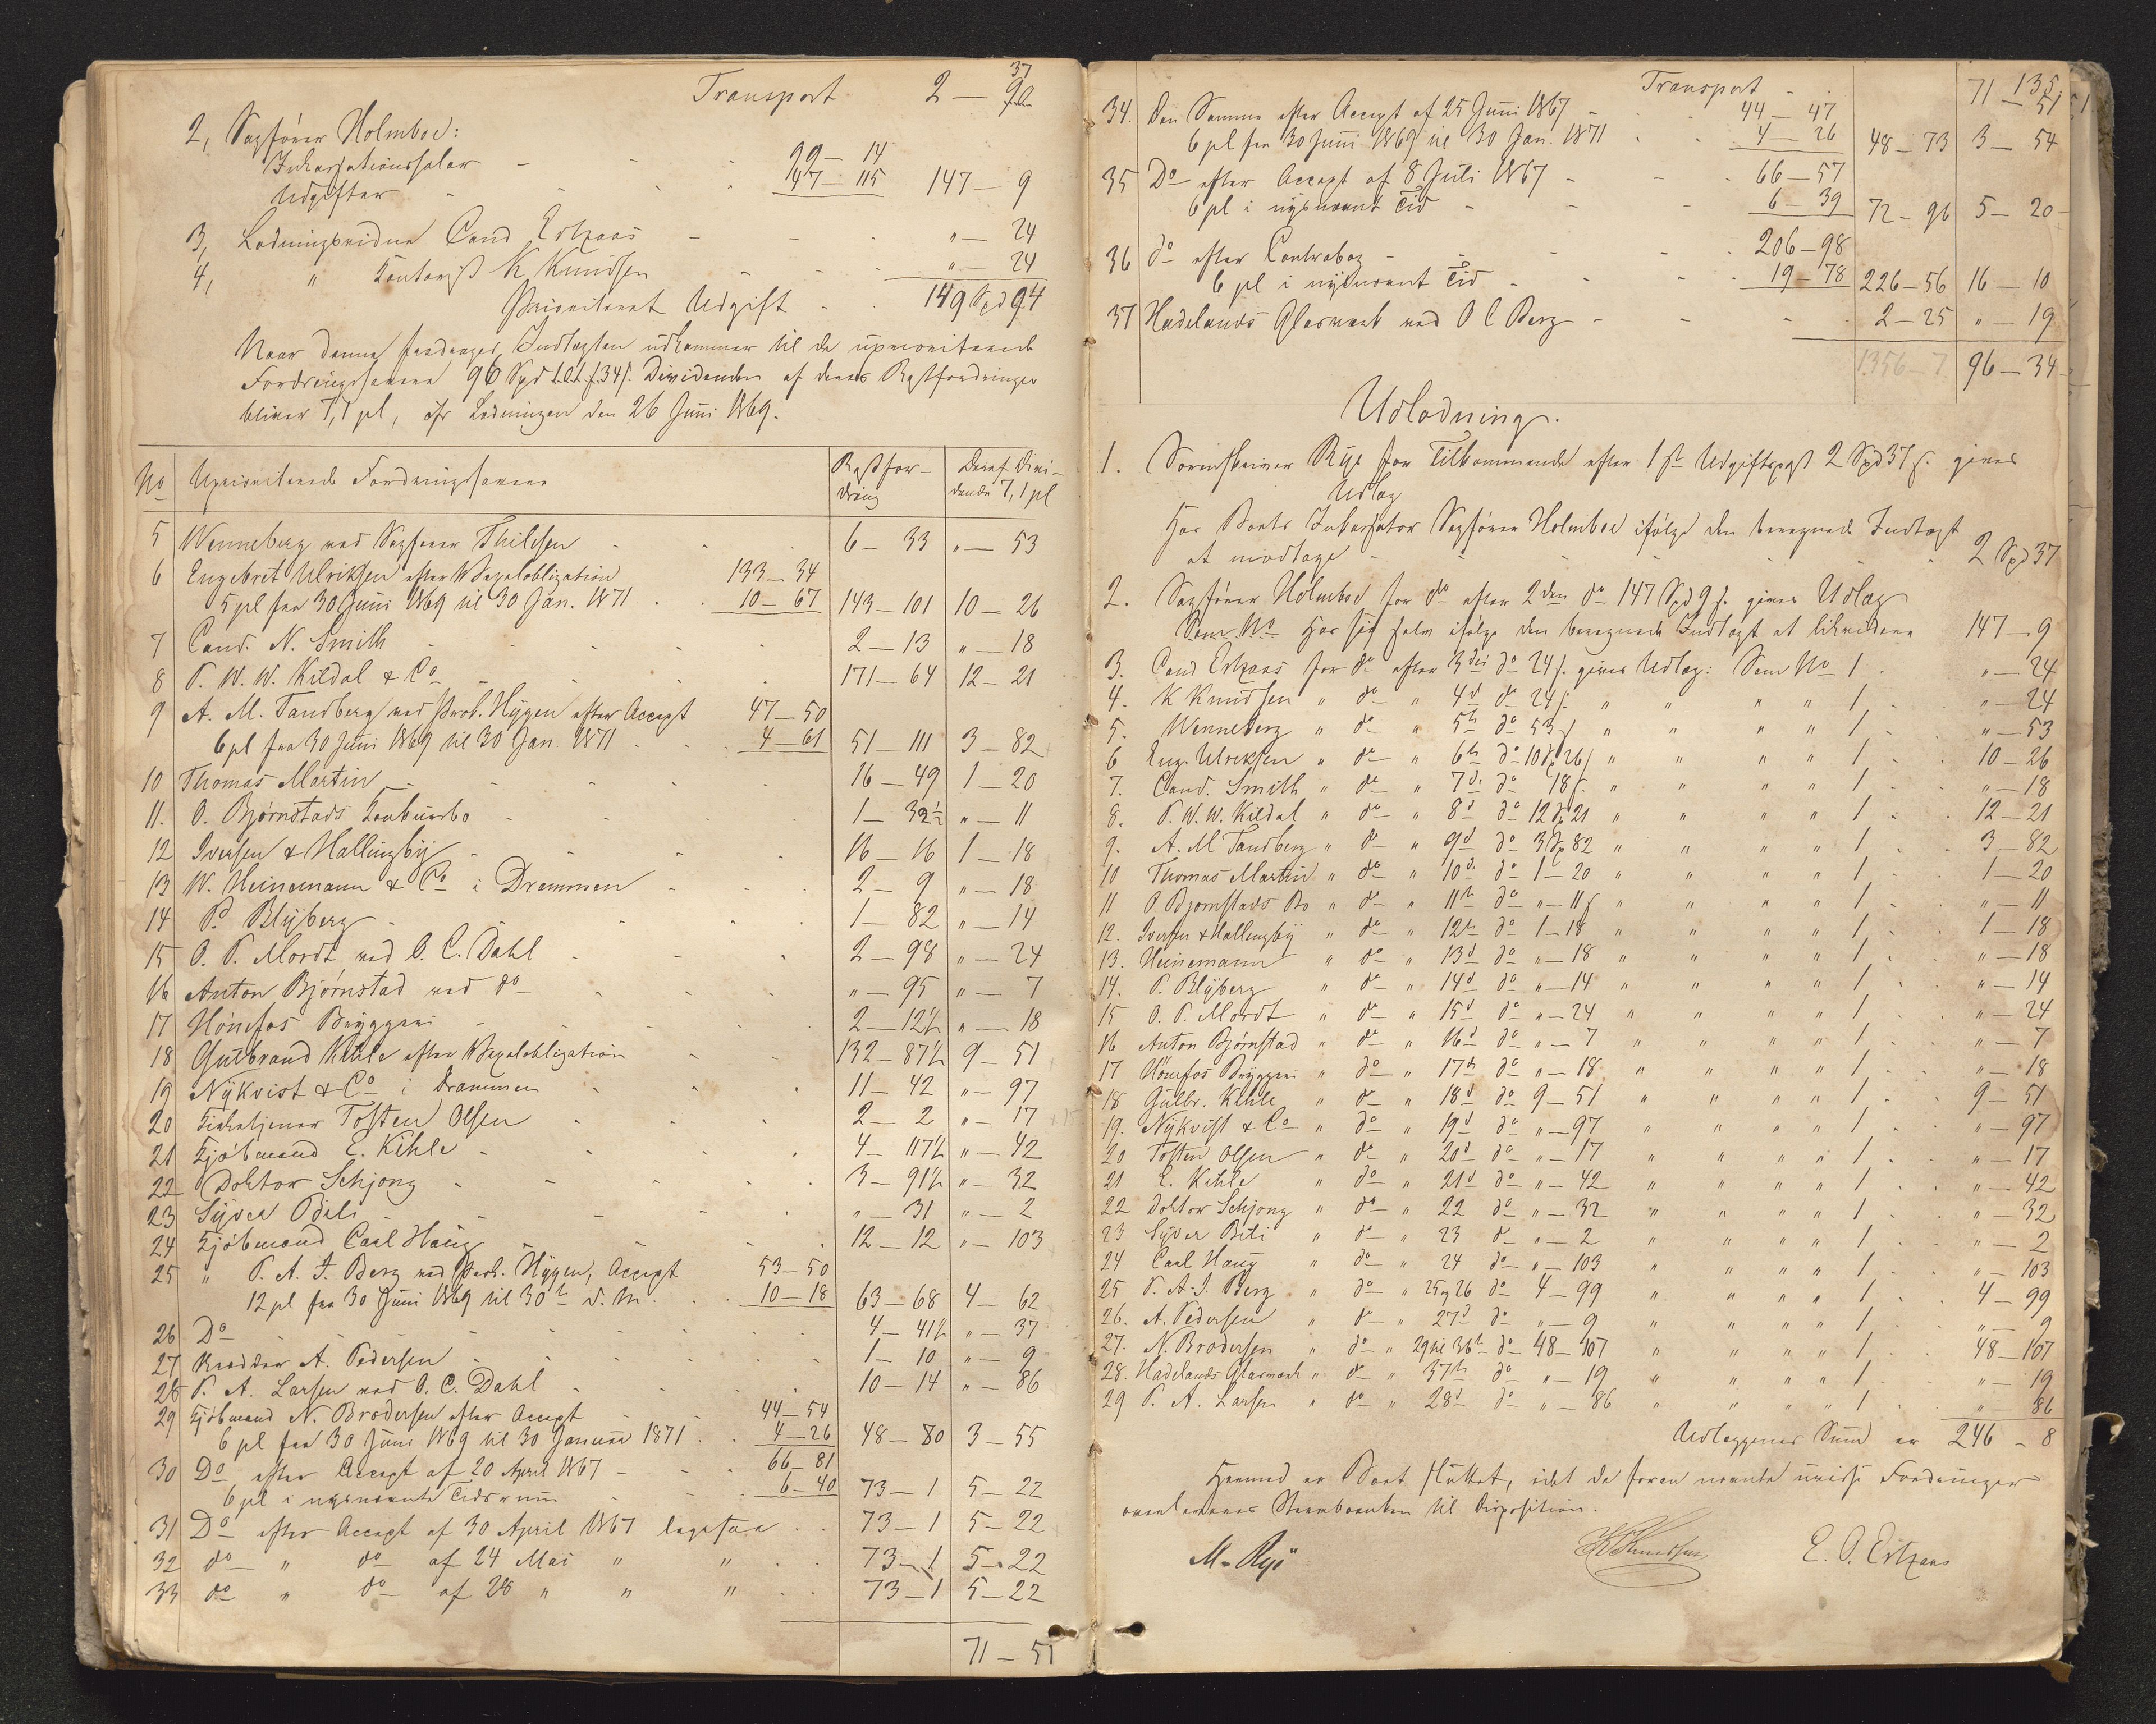 Transport 2 — 37
2, Sagfører Holmboe:
Inkassationssalær 99 — 14
Udgifter 47 — 115 147 — 9
3, Lodningsvidne Cand Erkaas " — 24
4, " Kontorist K Knudsen " — 24
Prioriteret Udgift 149 Spd 94
Naar denne fradrages Indtægten udkommer til de uprioriterede
Fordringshavere 96 Spd 34 s. Dividenden af deres Restfordringer
bliver 7,1 pl, cfr Lodningen den 26 Juni 1869.
No Uprioriterede Fordringshavere Restfor- Deraf Divi-
dring dende 7,1 pl
5 Wenneberg ved Sagfører Thilesen 6 — 33 " — 53
6 Engebret Ulriksen efter Vexelobligation 133 — 34
5 pl fra 30 Juni 1869 til 30 Jan. 1871 10 — 67 143 — 101 10 — 26
7 Cand. N. Smith 2 — 13 " — 18
8 P. W. W. Kildal & Co 171 — 64 12 — 21
9 A. M. Tandberg ved Prok. Hygen efter Accept 47 — 50
6 pl fra 30 Juni 1869 til 30 Jan. 1871 4 — 61 51 — 111 3 — 82
10 Thomas Martin 16 — 49 1 — 20
11. O. Bjørnstads Konkursbo 1 — 32½ " — 11
12 Iversen & Hallingby 16 — 16 1 — 18
13 W. Heinemann & Co i Drammen 2 — 9 " — 18
14 P. Blyberg 1 — 82 " — 14
15 O. P. Mordt ved O. C. Dahl 2 — 98 " — 24
16 Anton Bjørnstad ved do " — 95 " — 7
17 Hønefos Bryggeri 2 — 12½ " — 18
18 Gulbrand Kihle efter Vexelobligation 132 — 87½ 9 — 51
19 Nykvist & Co i Drammen 11 — 42 " — 97
20 Kirketjener Tosten Olsen 2 — 2 " — 17
21 Kjøbmand E. Kihle 4 — 117½ " — 42
22 Doktor Schjong 3 — 91½ " — 32
23 Syver Bili " — 31 " — 2
24 Kjøbmand Carl Haug 12 — 12 " — 103
25 " P. A. J. Berg ved Prok. Hygen, Accept 53 — 50
12 pl fra 30 Juni 1869 til 30te d. M. 10 — 18 63 — 68 4 — 62
26 Do 4 — 41½ " — 37
27 A. Pedersen 1 — 10 " — 9
28 P. A. Larsen ved O. C. Dahl 10 — 14 " — 86
29 Kjøbmand N. Brodersen efter Accept 44 — 54
6 pl fra 30 Juni 1869 til 30 Januar 1871 4 — 26 48 — 80 3 — 55
30 Do efter Accept af 20 April 1867 66 — 81
6 pl i nysnævnte Tidsrum 6 — 40 73 — 1 5 — 22
31 Do efter Accept af 30 April 1867 ligesaa 73 — 1 5 — 22
32 do " do af 24 Mai " " 73 — 1 5 — 22
33 do " do af 28 " " " 73 — 1 5 — 22
71 — 51
Transport 71 — 51
34. Den Samme efter Accept af 25 Juni 1867 44 — 47
6 pl fra 30 Juni 1869 til 30 Jan. 1871 4 — 26 48 — 73 3 — 54
35 Do efter Accept af 8 Juli 1867 66 — 57
6 pl i nysnævnt Tid 6 — 39 72 — 96 5 — 20
36 do efter Contrabog 206 — 98
6 pl i nysnævnt Tid 19 — 78 226 — 56 16 — 10
37 Hadelands Glasværk ved O C Berg 2 — 25 " — 19
1356 — 7 96 — 34
Udlodning.
1. Sorenskriver Rye for Tilkommende efter 1ste Udgiftspost 2 Spd 37 s. gives
Udlæg
Hos Boets Inkassator Sagfører Holmboe ifølge den beregnede Indtægt
at modtage 2 Spd 37
2. Sagfører Holmboe for do efter 2den do 147 Spd 9 s. gives Udlæg
Hos sig selv ifølge den beregnede Indtægt at likvidere 147 — 9
3. Cand Erkaas for do efter 3die do 24 s. gives Udlæg: Som No 1 " — 24
4. K Knudsen " do " 4d do 24 s. " " " " 1 " — 24
5. Wenneberg " do " 5te do 53 s " " " " 1 " — 53
6 Eng. Ulriksen " do " 6te do 10 Sp 26 s " " " " 1 10 — 26
7. Cand. Smith " do " 7d do 18 s. " " " " 1 " — 18
8. P. W. W. Kildal " do " 8d do 12 Sp 21 " " " " 1 12 — 21
9. A. M Tandberg " do " 9d do 3 Sp 82 " " " " 1 3 — 82
10 Thomas Martin " do " 10d do 1 — 20 " " " " 1 1 — 20
11 O Bjornstads Bo " do " 11te do " — 11 s " " " " 1 " — 11
12. Iversen & Hallingby " do " 12te do 1 — 18 " " " " 1 1 — 18
13. Heinemann " do " 13d do " — 18 " " " " 1 " — 18
14. P. Blyberg " do " 14d do " — 14 " " " " 1 " — 14
15 O. P. Mordt " do " 15d do " — 24 " " " " 1 " — 24
16 Anton Bjørnstad " do " 16d do " — 7 " " " " 1 " — 7
17 Hønefos Bryggeri " do " 17de do " — 18 " " " " 1 " — 18
18 Gulbr. Kihle " do " 18d do 9 — 51 " " " " 1 9 — 51
19. Nykvist & Co " do " 19d do " — 97 " " " " 1 " — 97
20 Tosten Olsen " do " 20d do " — 17 " " " " 1 " — 17
21 E. Kihle " do " 21d do " — 42 " " " " 1 " — 42
22 Doktor Schjong " do " 22 do " — 32 " " " " 1 " — 32
23 Syver Bili " do " 23 do " — 2 " " " " 1 " — 2
24 Carl Haug " do " 24 do " — 103 " " " " 1 " — 103
25 P. A. J. Berg " do " 25 og 26 do 4 — 99 " " " " 1 4 — 99
26. A. Pedersen " do " 27d do " — 9 " " " " 1 " — 9
27. N. Brodersen " do " 29 til 36te do 48 — 107 " " " " 1 48 — 107
28. Hadelands Glasværk " do " 37te do " — 19 " " " " 1 " — 19
29 P. A. Larsen " do " 28d do " — 86 " " " " 1 " — 86
Udlæggenes Sum er 246 — 8
Hermed er Boet sluttet, idet de foran nævnte uvisse Fordringer
overlades til Disposition.
M. Rye K Knudsen E. O. Erkaas